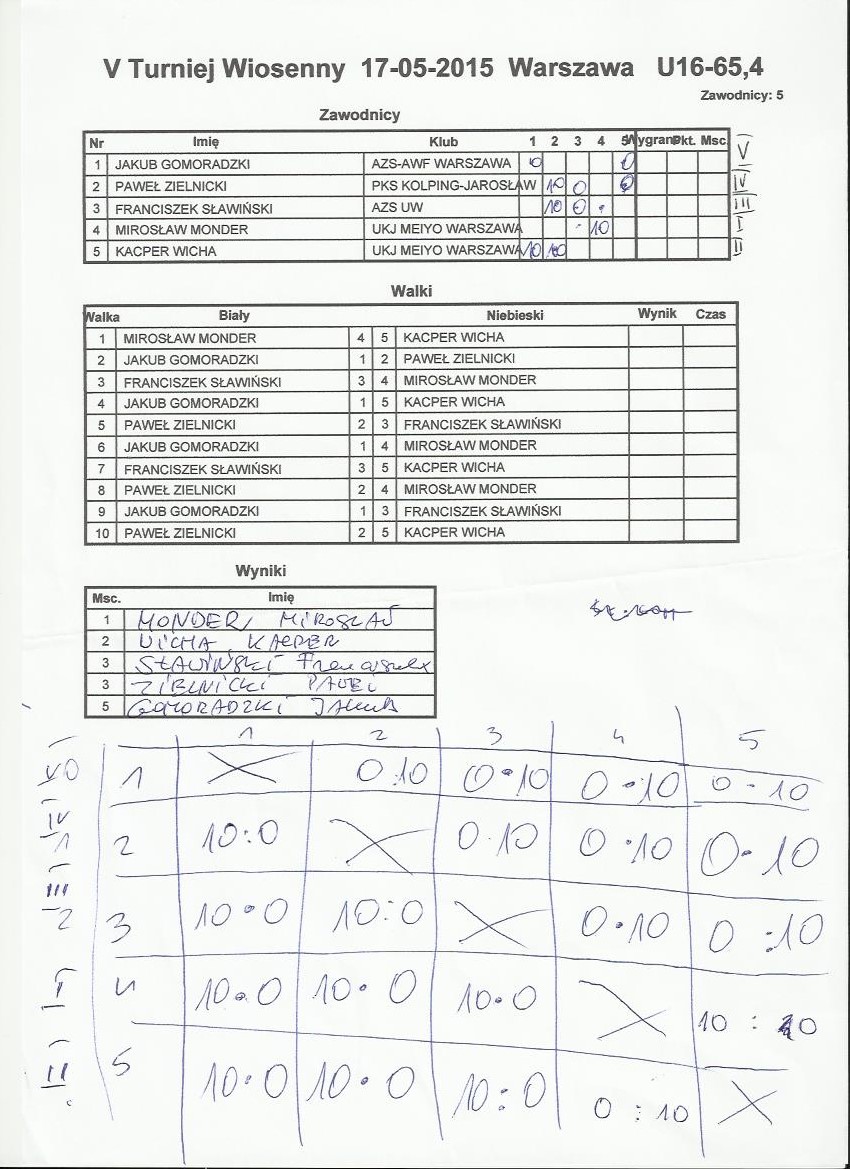 V Turniej Wiosenny 17-05-2015 Warszawa U16-65,4
Zawodnicy: 5
Zawodnicy
Nr Imię Klub 1 2 3 4 5 Wygrane Pkt. Msc.
1 JAKUB GOMORADZKI AZS-AWF WARSZAWA 10 0 V
2 PAWEŁ ZIELNICKI PKS KOLPING-JAROSŁAW 10 0 0 IV
3 FRANCISZEK SŁAWIŃSKI AZS UW 10 0 III
4 MIROSŁAW MONDER UKJ MEIYO WARSZAWA 10 I
5 KACPER WICHA UKJ MEIYO WARSZAWA 10 10 II
Walki
Walka Biały Niebieski Wynik Czas
1 MIROSŁAW MONDER 4 5 KACPER WICHA
2 JAKUB GOMORADZKI 1 2 PAWEŁ ZIELNICKI
3 FRANCISZEK SŁAWIŃSKI 3 4 MIROSŁAW MONDER
4 JAKUB GOMORADZKI 1 5 KACPER WICHA
5 PAWEŁ ZIELNICKI 2 3 FRANCISZEK SŁAWIŃSKI
6 JAKUB GOMORADZKI 1 4 MIROSŁAW MONDER
7 FRANCISZEK SŁAWIŃSKI 3 5 KACPER WICHA
8 PAWEŁ ZIELNICKI 2 4 MIROSŁAW MONDER
9 JAKUB GOMORADZKI 1 3 FRANCISZEK SŁAWIŃSKI
10 PAWEŁ ZIELNICKI 2 5 KACPER WICHA
Wyniki
Msc. Imię
1 MONDER, MIROSŁAW
2 WICHA KACPER
3 SŁAWIŃSKI Franciszek
3 ZIELNICKI PAWEŁ
5 GOMORADZKI JAKUB
1 2 3 4 5
V 0 1 X 0:10 0:10 0:10 0-10
IV 1 2 10:0 X 0:10 0:10 0:10
III 2 3 10:0 10:0 X 0:10 0:10
I 4 10:0 10:0 10:0 X 10:0
II 5 10:0 10:0 10:0 0:10 X